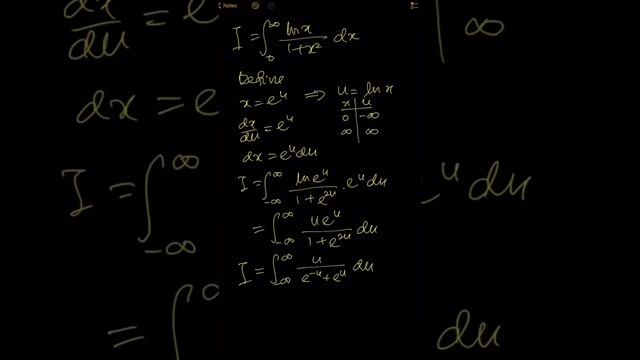 Notes
I = ∫₀^∞ ln x / (1+x²) dx
Define
x = e^u ⟹ u = ln x
dx/du = e^u
x | u
0 | -∞
∞ | ∞
dx = e^u du
I = ∫_{-∞}^{∞} ln e^u / (1 + e^{2u}) · e^u du
= ∫_{-∞}^{∞} u e^u / (1 + e^{2u}) du
I = ∫_{-∞}^{∞} u / (e^{-u} + e^u) du
dx/du
∞
dx = e
I = ∫_{-∞}^{∞}
e^u du
= ∫^∞
du